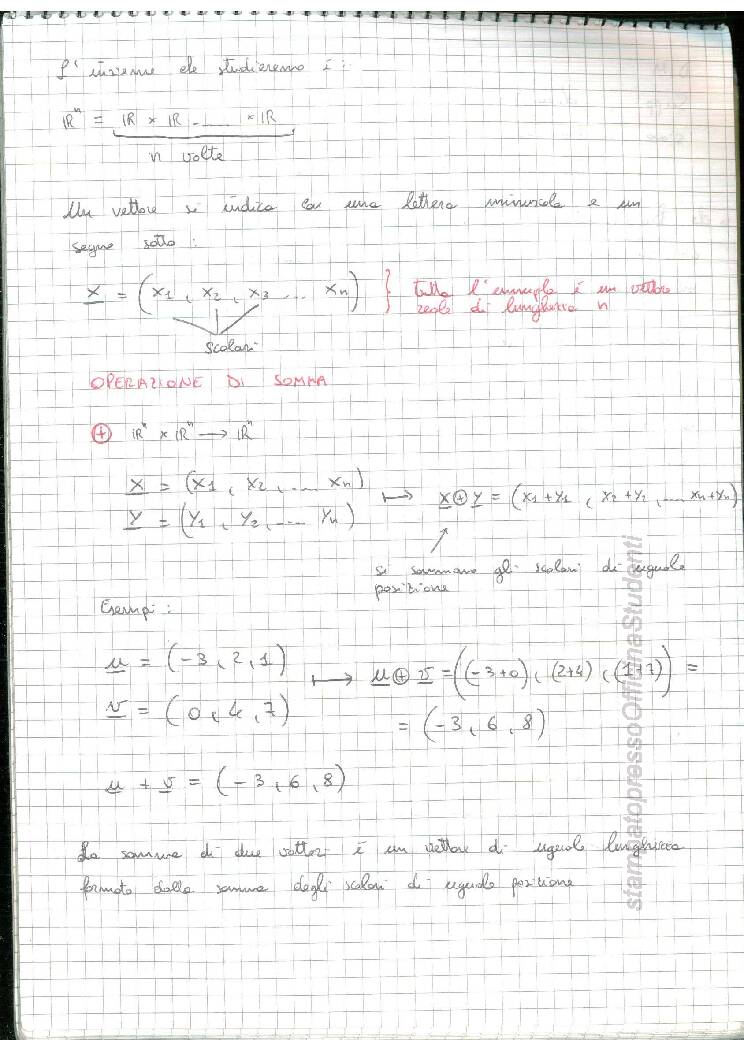 L'insieme che studieremo è :
ℝⁿ = ℝ × ℝ ..... × ℝ
n volte
Un vettore si indica con una lettera minuscola e un
segno sotto :
x = (x1 , x2 , x3 ... xn) } tutta l'ennupla è un vettore
reale di lunghezza n
scalari
OPERAZIONE DI SOMMA
⊕ ℝⁿ × ℝⁿ → ℝⁿ
x = (x1 , x2 , .... xn)
y = (y1 , y2 , .... yn)
↦ x ⊕ y = (x1+y1 , x2+y2 , .... xn+yn)
si sommano gli scalari di uguale
posizione
Esempi :
u = (-3 , 2 , 1)
v = (0 , 4 , 7)
↦ u ⊕ v = ((-3+0) , (2+4) , (1+7)) =
= (-3 , 6 , 8)
u + v = (-3 , 6 , 8)
La somma di due vettori è un vettore di uguale lunghezza
formato dalla somma degli scalari di uguale posizione
stampatopressoOfficinaStudenti